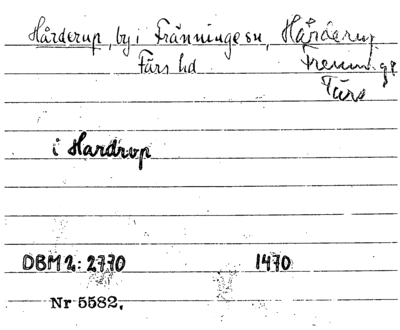 Hårderup, by i Fränninge sn, Hårderup
Färs hd Frenninge
Färs
i Hardrop
DBM 2: 2770 1470
Nr 5582.